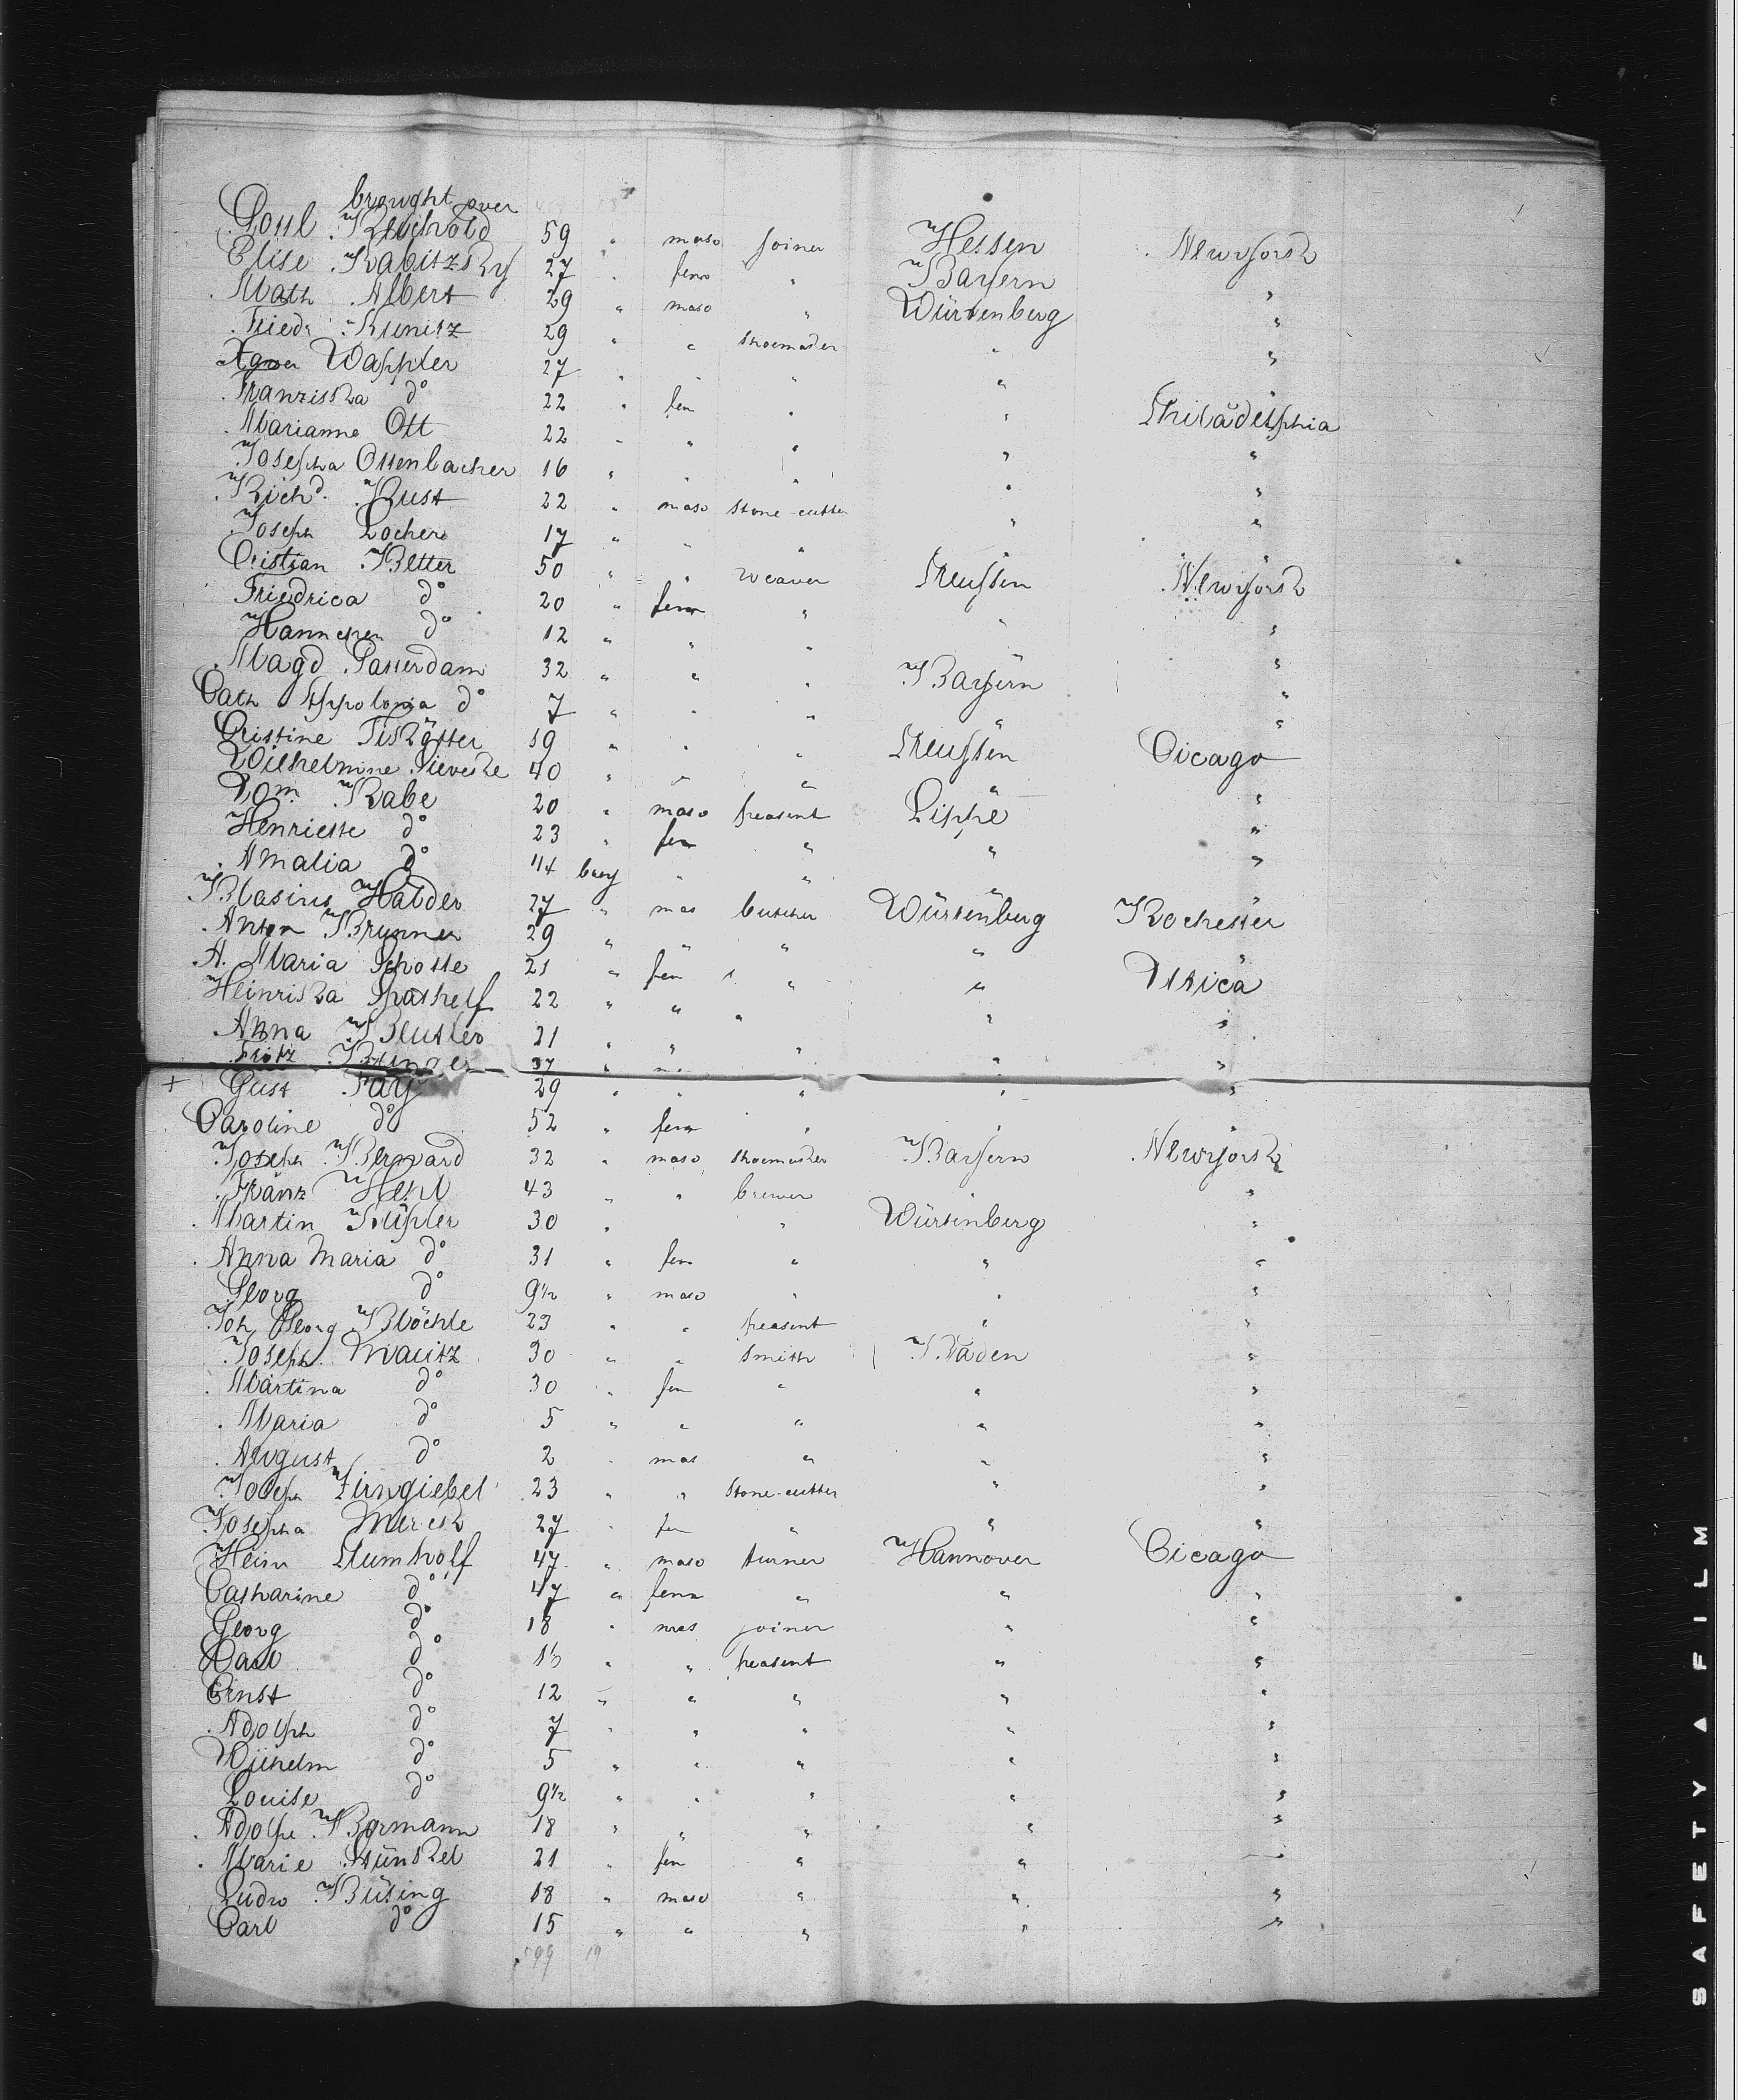 brought over
Poul Reichold 59 " masc joiner Hessen Newyork
Elise Kabitzky 27 " fem " Bayern "
Math Albert 29 " masc " Würtenberg "
Friedr Kunitz 29 " " shoemaker " "
Wappler 27 " " " " "
Franziska do 22 " fem " " Philadelphia
Marianne Ott 22 " " " " "
Josepha Ottenbacher 16 " " " " "
Richd. Rust 22 " masc stone-cutter " "
Joseph Locher 17 " " " " "
Cristian Vetter 50 " " weaver Preussen Newyork
Friedrica do 20 " fem " " "
Hannchen do 12 " " " " "
Magd Passerdam 32 " " " Bayern "
Cath Appolonia do 7 " " " " "
Cristine 19 " " " Preussen Cicago
Wilhelmine Sieveke 40 " " " " "
Dom. Rabe 20 " masc peasent Lippe "
Henriette do 23 " fem " " "
Amalia do 11/4 baby " " " "
Blasius Halder 27 " mas butcher Würtenberg Rochester
Anton Brunner 29 " " " " "
A. Maria Schotte 21 " fem " " Utica
Heinrika Spathelf 22 " " " " "
Anna Beutler 21 " " " " "
Fritz 37 " " " "
+ Gust Fay 29 " " " " "
Caroline do 52 " fem " " "
Joseph Bernard 32 " masc shoemaker Bayern Newyork
Franz Hehl 43 " " brewer " "
Martin 30 " " Würtenberg "
Anna Maria do 31 " fem " " "
Georg do 9½ " masc " " "
Joh Georg Blöchle 23 " " peasent " "
Joseph Mautz 30 " " smith Baden "
Martina do 30 " fem " " "
Maria do 5 " " " " "
August do 2 " mas " " "
Joseph Zirngiebel 23 " " stone-cutter " "
Josepha 27 " fem " " "
Heinr Stumholf 47 " masc turner Hannover Cicago
Catharine do 47 " fem " " "
Georg do 18 " mas joiner " "
Carl do 15 " " peasent " "
Ernst do 12 " " " " "
Adolph do 7 " " " " "
Wilhelm do 5 " " " " "
Louise do 9½ " " " " "
Adolpe Bormann 18 " " " " "
Marie Künkel 21 " fem " " "
Ludw Büsing 18 " masc " " "
Carl do 15 " " " " "
599 19
SAFETY A FILM